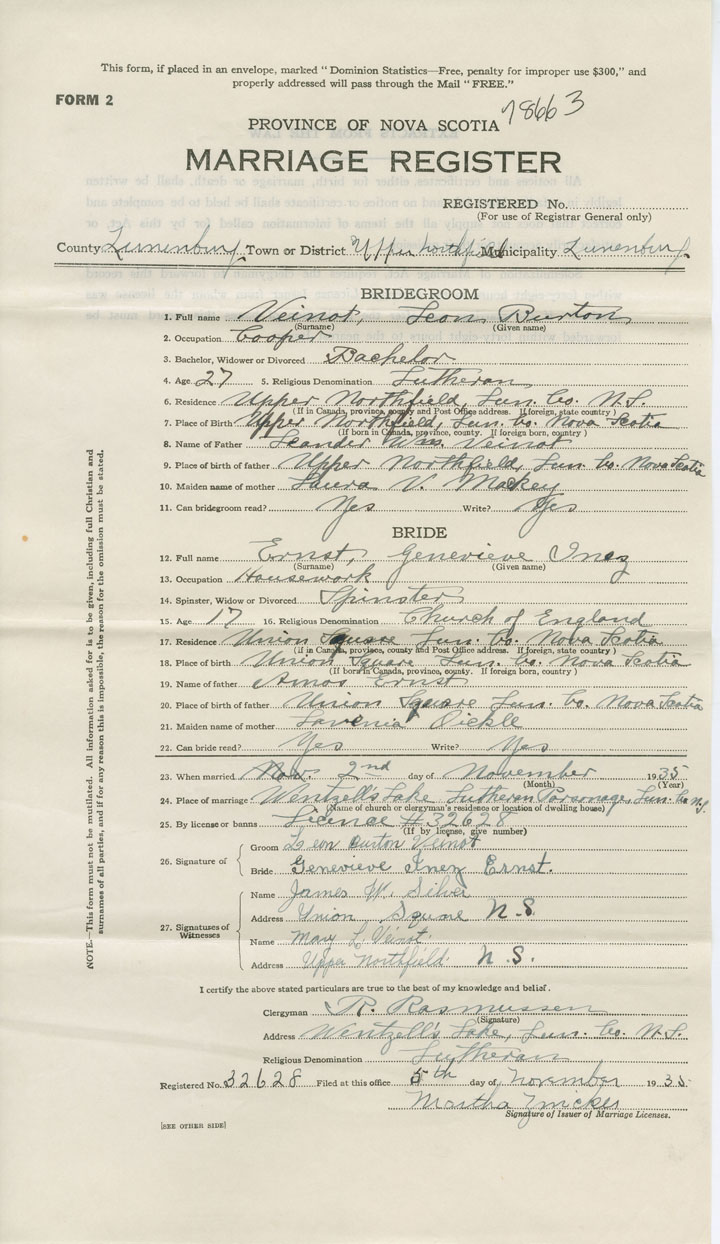 This form, if placed in an envelope, marked " Dominion Statistics—Free, penalty for improper use $300," and
properly addressed will pass through the Mail " FREE."
FORM 2
78663
PROVINCE OF NOVA SCOTIA
MARRIAGE REGISTER
REGISTERED No.
(For use of Registrar General only)
County Lunenburg Town or District Upper Northfield Municipality Lunenburg
BRIDEGROOM
1. Full name Veinot, Leon Burton
(Surname) (Given name)
2. Occupation Cooper
3. Bachelor, Widower or Divorced Bachelor
4. Age 27 5. Religious Denomination Lutheran
6. Residence Upper Northfield, Lun. Co. N.S.
(If in Canada, province, county and Post Office address. If foreign, state country )
7. Place of Birth Upper Northfield, Lun. Co. Nova Scotia
(If born in Canada, province, county. If foreign born, country )
8. Name of Father Leander Wm. Veinot
9. Place of birth of father Upper Northfield, Lun. Co. Nova Scotia
10. Maiden name of mother Laura V. Mackey
11. Can bridegroom read? Yes Write? Yes
BRIDE
12. Full name Ernst, Genevieve Inez
(Surname) (Given name)
13. Occupation Housework
14. Spinster, Widow or Divorced Spinster
15. Age 17 16. Religious Denomination Church of England
17. Residence Union Square Lun. Co. Nova Scotia
(If in Canada, province, county and Post Office address. If foreign, state country )
18. Place of birth Union Square Lun. Co. Nova Scotia
(If born in Canada, province, county. If foreign born, country )
19. Name of father Amos Ernst
20. Place of birth of father Union Square Lun. Co. Nova Scotia
21. Maiden name of mother Lavenia Oickle
22. Can bride read? Yes Write? Yes
23. When married 2nd day of November 1935
(Month) (Year)
24. Place of marriage Wentzell's Lake Lutheran Parsonage, Lun. Co. N.S.
(Name of church or clergyman's residence or location of dwelling house)
25. By license or banns License #32628
(If by license, give number)
26. Signature of
Groom Leon Burton Veinot
Bride Genevieve Inez Ernst.
27. Signatures of Witnesses
Name James W. Silver
Address Union Squre N.S.
Name Mary L. Veinot
Address Upper Northfield N.S.
I certify the above stated particulars are true to the best of my knowledge and belief.
Clergyman R. Rasmussen
(Signature)
Address Wentzell's Lake, Lun. Co. N.S.
Religious Denomination Lutheran
Registered No. 32628 Filed at this office 5th day of November 1935
Martha Zwicker
Signature of Issuer of Marriage Licenses.
[SEE OTHER SIDE]
NOTE.—This form must not be mutilated. All information asked for is to be given, including full Christian and
surnames of all parties, and if for any reason this is impossible, the reason for the omission must be stated.